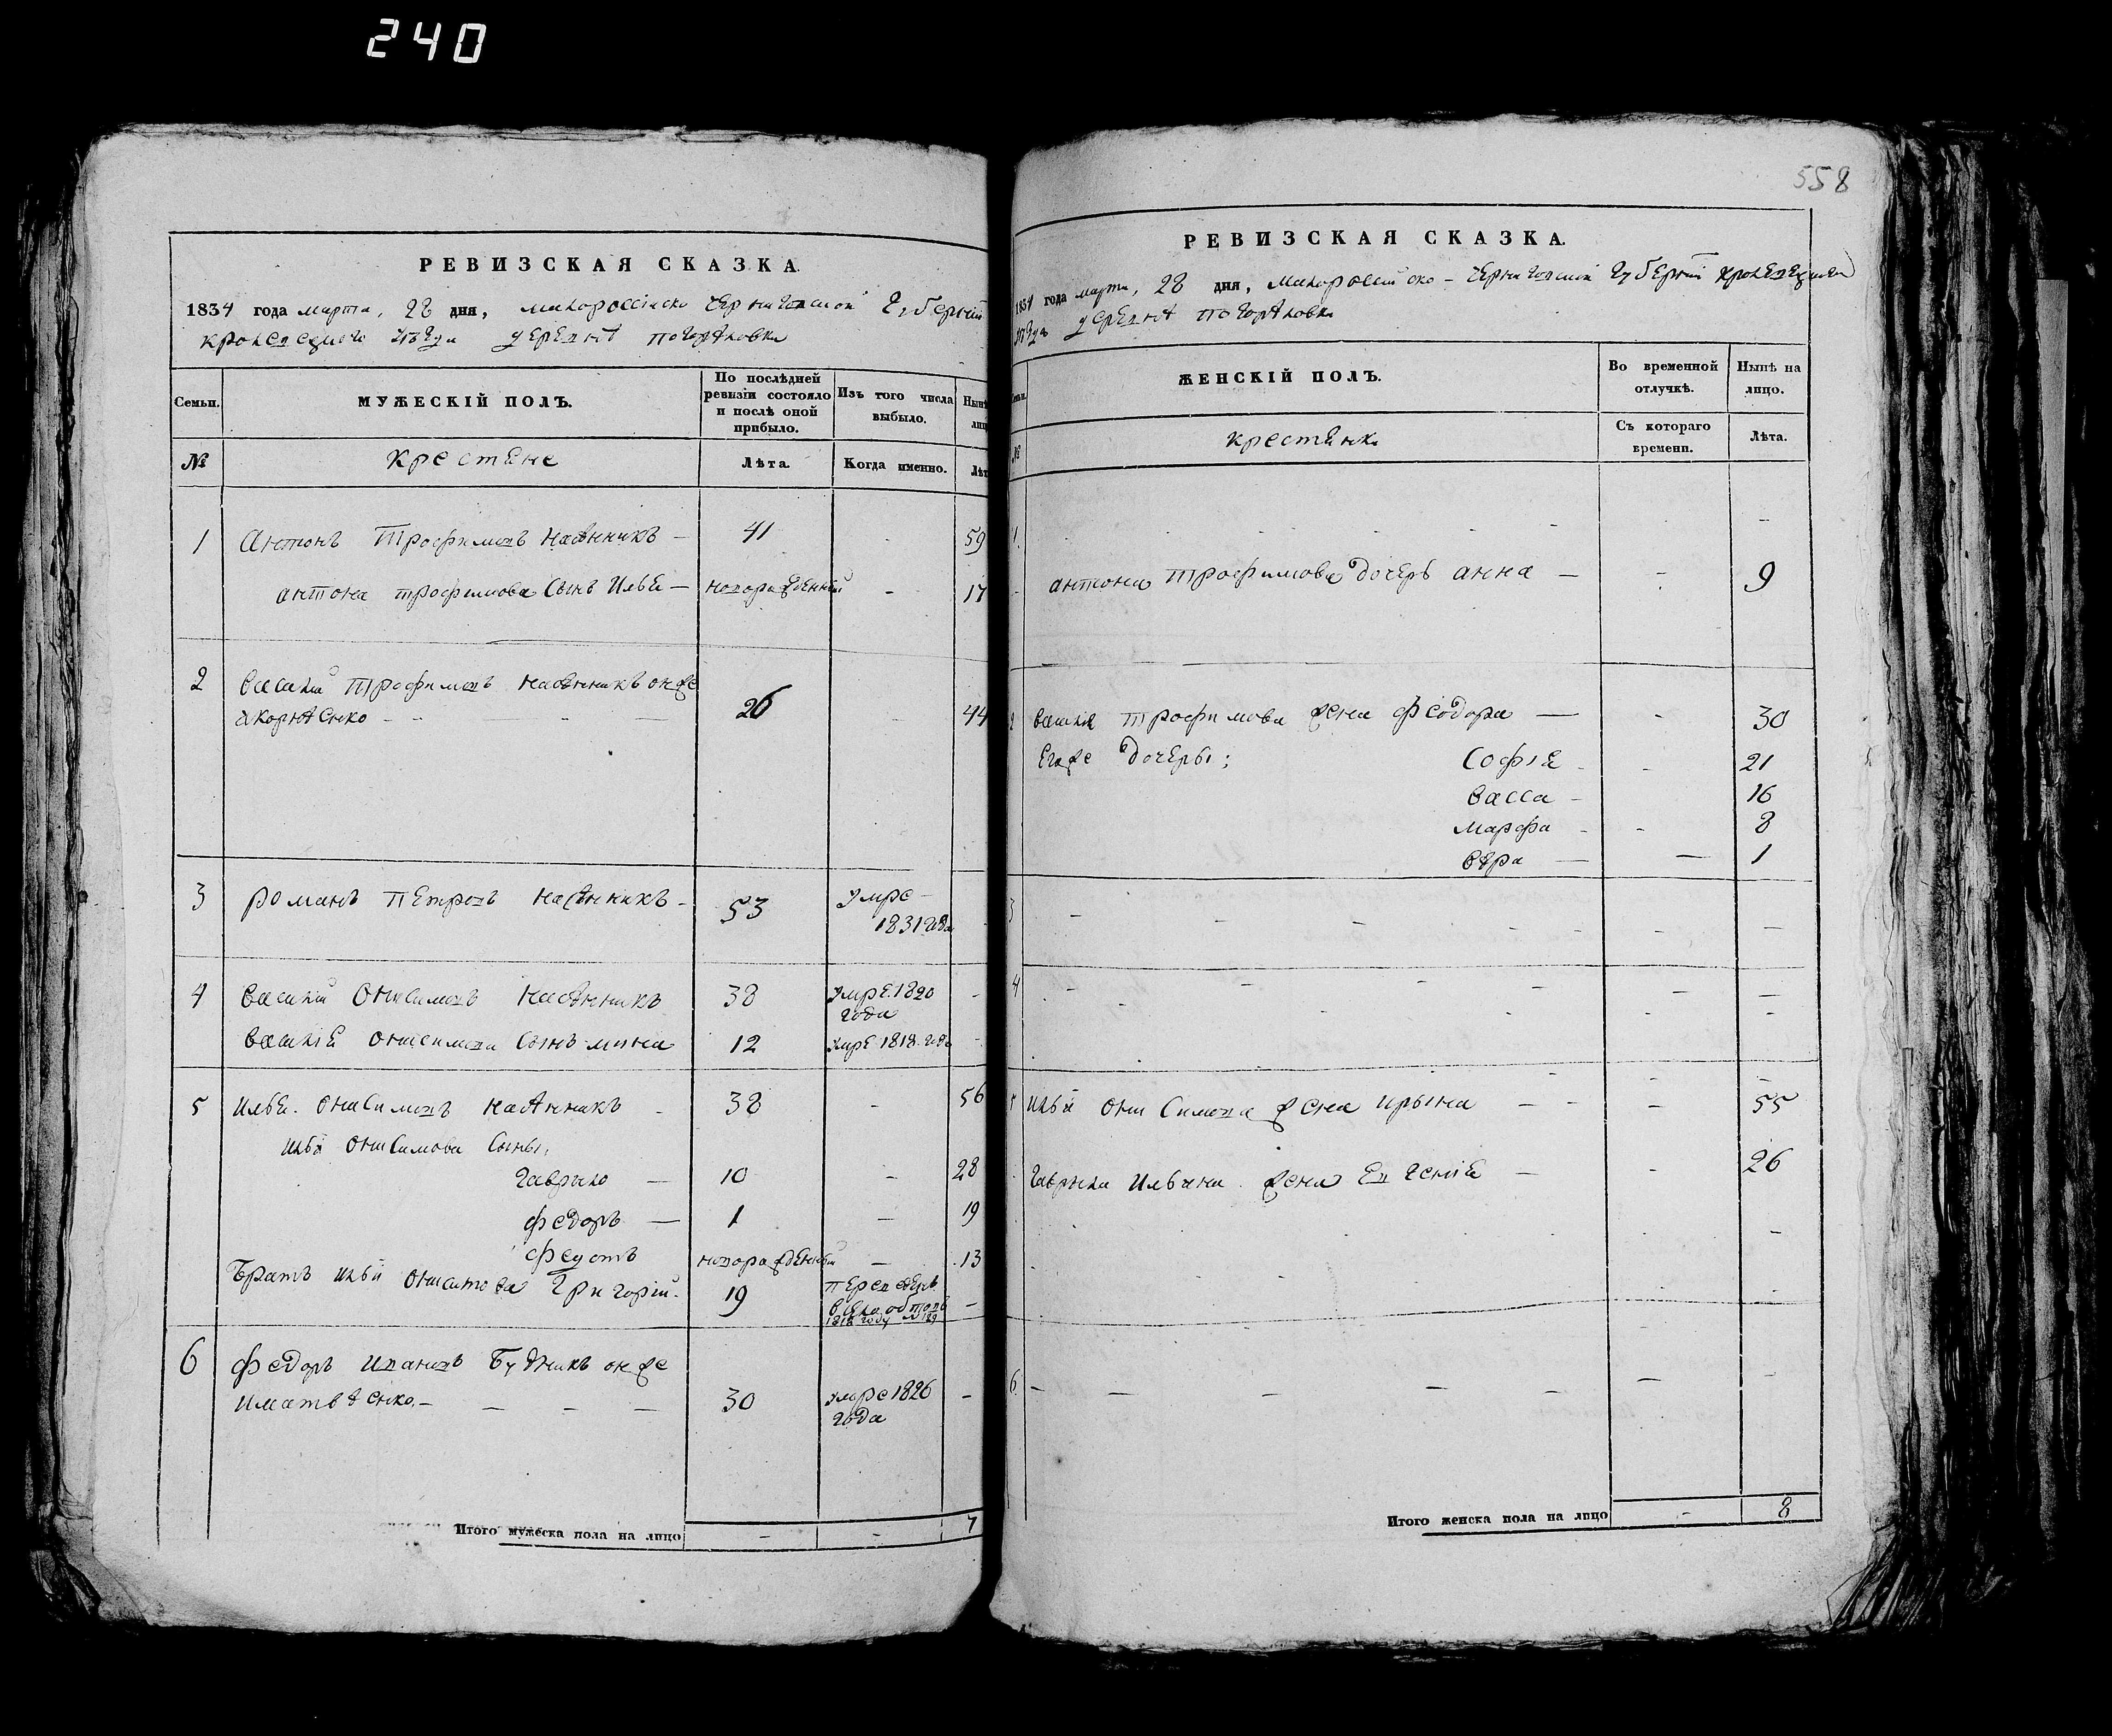 240
558
РЕВИЗСКАЯ СКАЗКА.
1834 года марта, 28 дня, малороссійско Черниговской Губерніи
кролевецкого уезда деревня
Семьи. МУЖЕСКІЙ ПОЛЪ. По послѣдней ревизіи состояло и послѣ оной прибыло. Изъ того числа выбыло. Нынѣ лиц
№ Крестяне Лѣта. Когда именно. Лѣт
1 Антонъ Трофимовъ 41 - 59
антона трофимова сынъ Илья — новорожденный - 17
2 Василій Трофимовъ онже
26 - 44
3 Романъ Петровъ 53 умре 1831 года
4 Василій Онисимовъ 38 умре 1820
года
Василія Онисимова сынъ мина 12 умре 1818 года
5 Илья Онисимовъ 38 - 56
Ильи Онисимова сыны,
Гаврыло — 10 - 28
Федоръ — 1 — 19
Федотъ новорожденный — 13
Братъ Ильи Онисимова Григорій. 19 1818 году —
6 Федоръ Ивановъ онже
30 умре 1826 —
года
Итого мужеска пола на лицо — - 7
РЕВИЗСКАЯ СКАЗКА.
1834 года марта, 28 дня, Малороссійско - Черниговской Губерніи Кролевецкого
уезда деревня
Семьи. ЖЕНСКІЙ ПОЛЪ. Во временной отлучкѣ. Нынѣ на лицо.
№ крестянки Съ котораго времени. Лѣта.
1
антона Трофимова дочерь анна — - 9
2 Василія Трофимова жена Феодора — - 30
Егоже дочеры: Софія - - 21
Васса - 16
Марфа - - 8
Вѣра — — 1
3
4
5 Ильи Онисимова жена Ирына — - — 55
Гаврыла Ильина жена Евгенія — - 26
6
Итого женска пола на лицо - 8